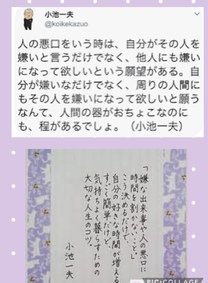 小池一夫
@koikekazuo
人の悪口をいう時は、自分がその人を
嫌いと言うだけでなく、他人にも嫌い
になって欲しいという願望がある。自
分が嫌いなだけでなく、周りの人間に
もその人を嫌いになって欲しいと願う
なんて、人間の器がおちょこなのに
も、程があるでしょ。（小池一夫）
「嫌な出来事や人の悪口に
時間を割かないこと」
こう決めるだけで、
自分の好きな時間が増える
すごく簡単だけど、
気持ちよく暮らすための
大切な人生のコツ。
小池一夫
PIC•COLLAGE